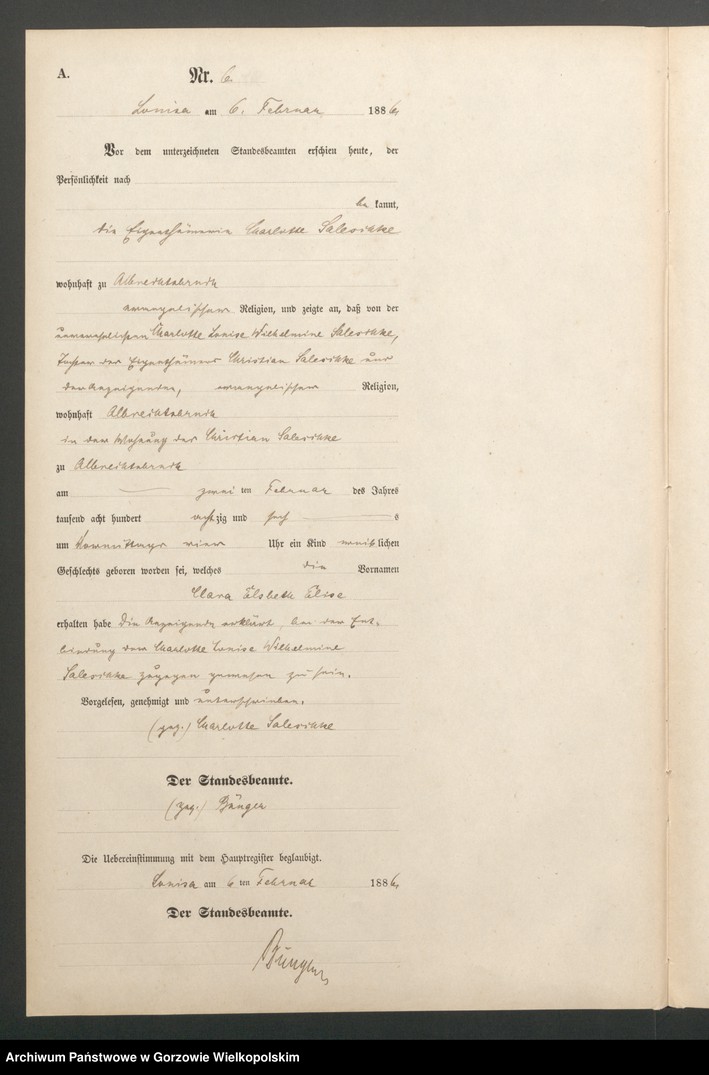 A.
Nr. 6.
Louisa am 6. Februar 1886.
Vor dem unterzeichneten Standesbeamten erschien heute, der
Persönlichkeit nach
be kannt,
die Eigenthümerin Charlotte Saleschke
wohnhaft zu Albrechtsbruch
evangelischer Religion, und zeigte an, daß von der
unverehelichten Charlotte Louise Wilhelmine Saleschke,
Tochter des Eigenthümers Christian Saleschke und
der Anzeigenden, evangelischer Religion,
wohnhaft Albrechtsbruch
in der Wohnung des Christian Saleschke
zu Albrechtsbruch
am zwei ten Februar des Jahres
tausend acht hundert achtzig und sechs
um Vormittags vier Uhr ein Kind weiblichen
Geschlechts geboren worden sei, welches die Vornamen
Clara Elsbeth Elise
erhalten habe Die Anzeigende erklärt, bei der Ent-
bindung der Charlotte Louise Wilhelmine
Saleschke zugegen gewesen zu sein.
Vorgelesen, genehmigt und unterschrieben.
(gez.) Charlotte Saleschke
Der Standesbeamte.
(gez.) Bünger
Die Uebereinstimmung mit dem Hauptregister beglaubigt.
Louisa am 6 ten Februar 1886.
Der Standesbeamte.
Bünger
Archiwum Państwowe w Gorzowie Wielkopolskim